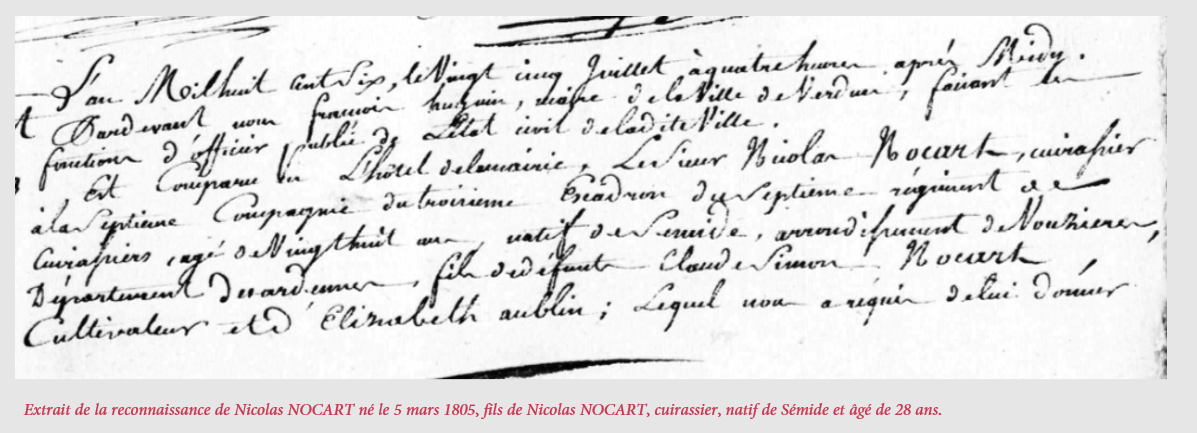 L'an Mil huit cent Six, le Vingt cinq Juillet à quatre heures après Midy.
Pardevant nous françois huguin, maire de la Ville de Verdun, faisant les
fonctions d'officier public de L'état civil de ladite Ville.
Est Comparu en L'hôtel de la mairie, Le Sieur Nicolas Nocart, cuirassier
à la Septieme Compagnie du troisieme Escadron du Septieme régiment de
Cuirassiers, agé de Vingt huit ans, natif de Semide, arrondissement de Vouzieres,
Département des ardennes, fils de défunts Claude Simon Nocart
Cultivateur et d'Elizabeth aublin; Lequel nous a requis de lui donner
Extrait de la reconnaissance de Nicolas NOCART né le 5 mars 1805, fils de Nicolas NOCART, cuirassier, natif de Sémide et âgé de 28 ans.